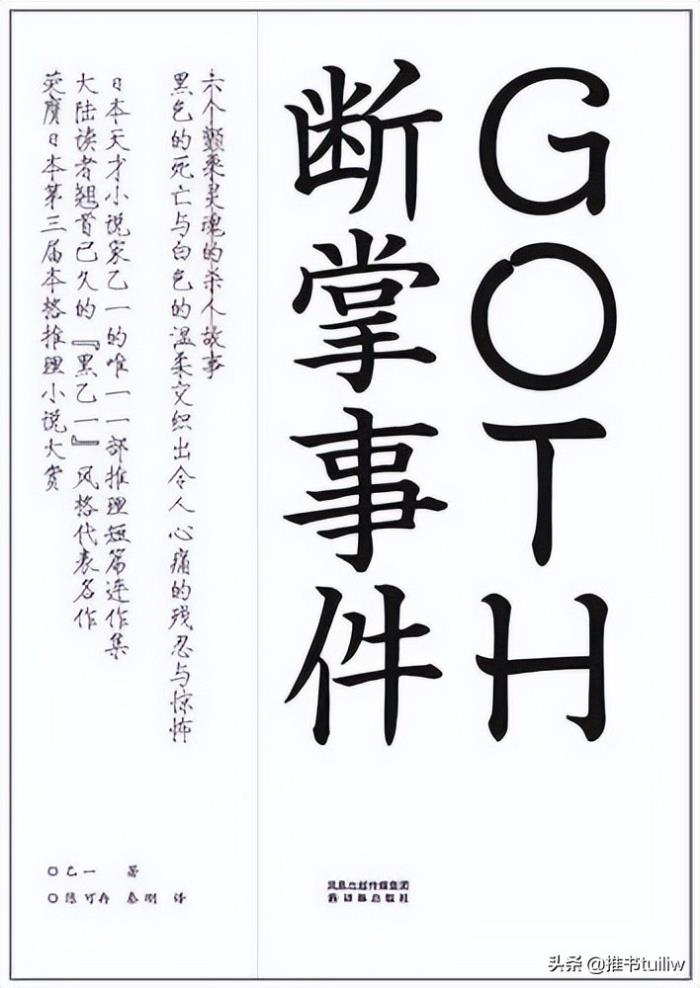 GOTH
断掌事件
六个颤栗灵魂的杀人故事
黑色的死亡与白色的温柔交织出令人心痛的残忍与惊怖
日本天才小说家乙一的唯一一部推理短篇连作集
大陆读者翘首已久的『黑乙一』风格代表名作
荣膺日本第三届本格推理小说大赏
○乙一 著
○陈可冉 秦刚 译
凤凰出版传媒集团
译林出版社
头条 @推书tuiliw